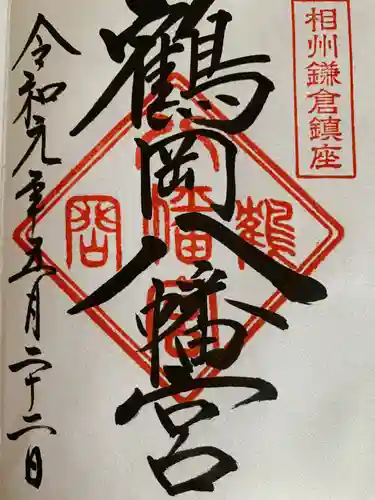 相州鎌倉鎮座
鶴岡八幡宮
令和元年五月二十二日
鶴
八幡宮
岡